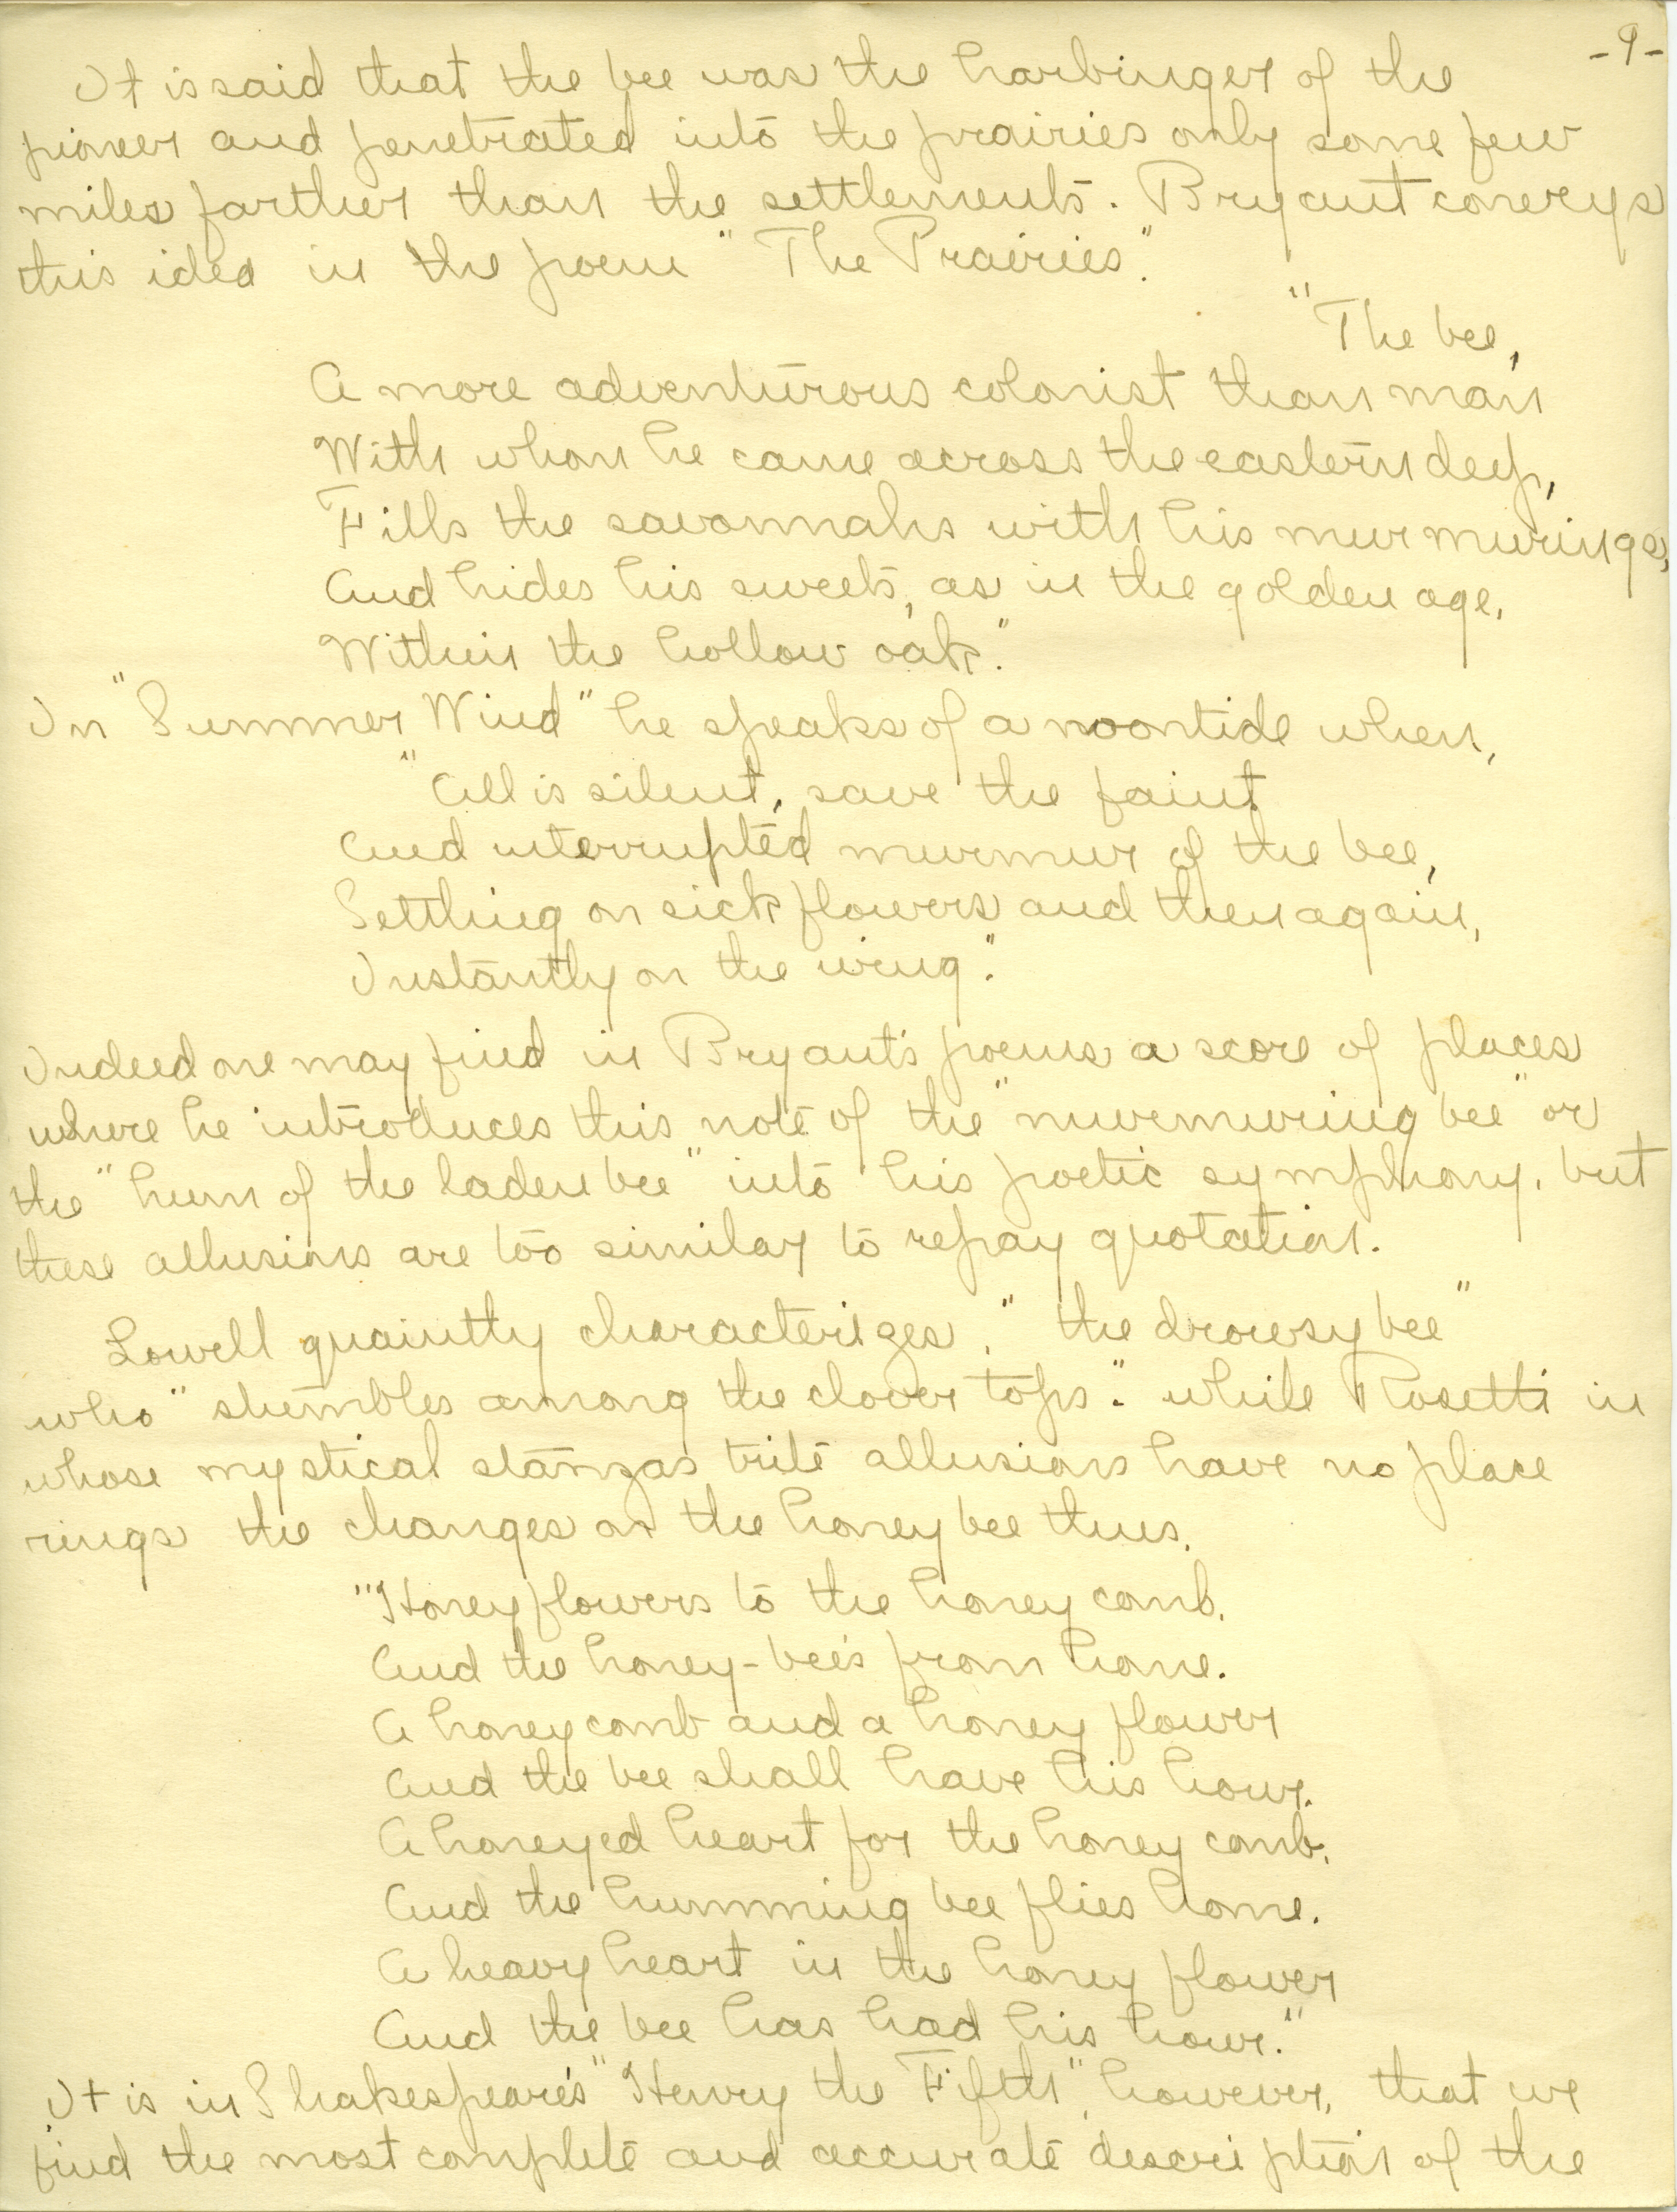 -9-
It is said that the bee was the harbinger of the
pioneer and penetrated into the prairies only some few
miles farther than the settlements. Bryant conveys
this idea in the poem "The Prairies."
"The bee,
A more adventurous colonist than man
With whom he came across the eastern deep,
Fills the savannahs with his murmurings,
And hides his sweets, as in the golden age,
Within the hollow oak."
In "Summer Wind" he speaks of a noontide when,
"All is silent, save the faint
And interrupted murmur of the bee,
Settling on sick flowers and then again,
Instantly on the wing."
Indeed one may find in Bryant's poems a score of places
where he introduces this note of the "murmuring bee" or
the "hum of the laden bee" into his poetic symphony, but
these allusions are too similar to repay quotation.
Lowell quaintly characterizes, "the drowsy bee"
who "stumbles among the clover tops." while Rosetti in
whose mystical stanzas trite allusions have no place
rings the changes on the honey bee thus.
"Honey flowers to the honey comb,
And the honey-bee's from home.
A honey comb and a honey flower
And the bee shall have his hour.
A honeyed heart for the honey comb,
And the humming bee flies home.
A heavy heart in the honey flower
And the bee has had his hour."
It is in Shakespeare's "Henry the Fifth", however, that we
find the most complete and accurate description of the